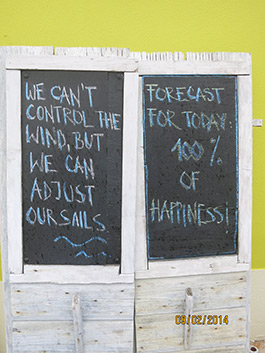 WE CAN'T
CONTROL THE
WIND, BUT
WE CAN
ADJUST
OUR SAILS.
FORECAST
FOR TODAY:
100%
OF
HAPPINESS!
09/02/2014